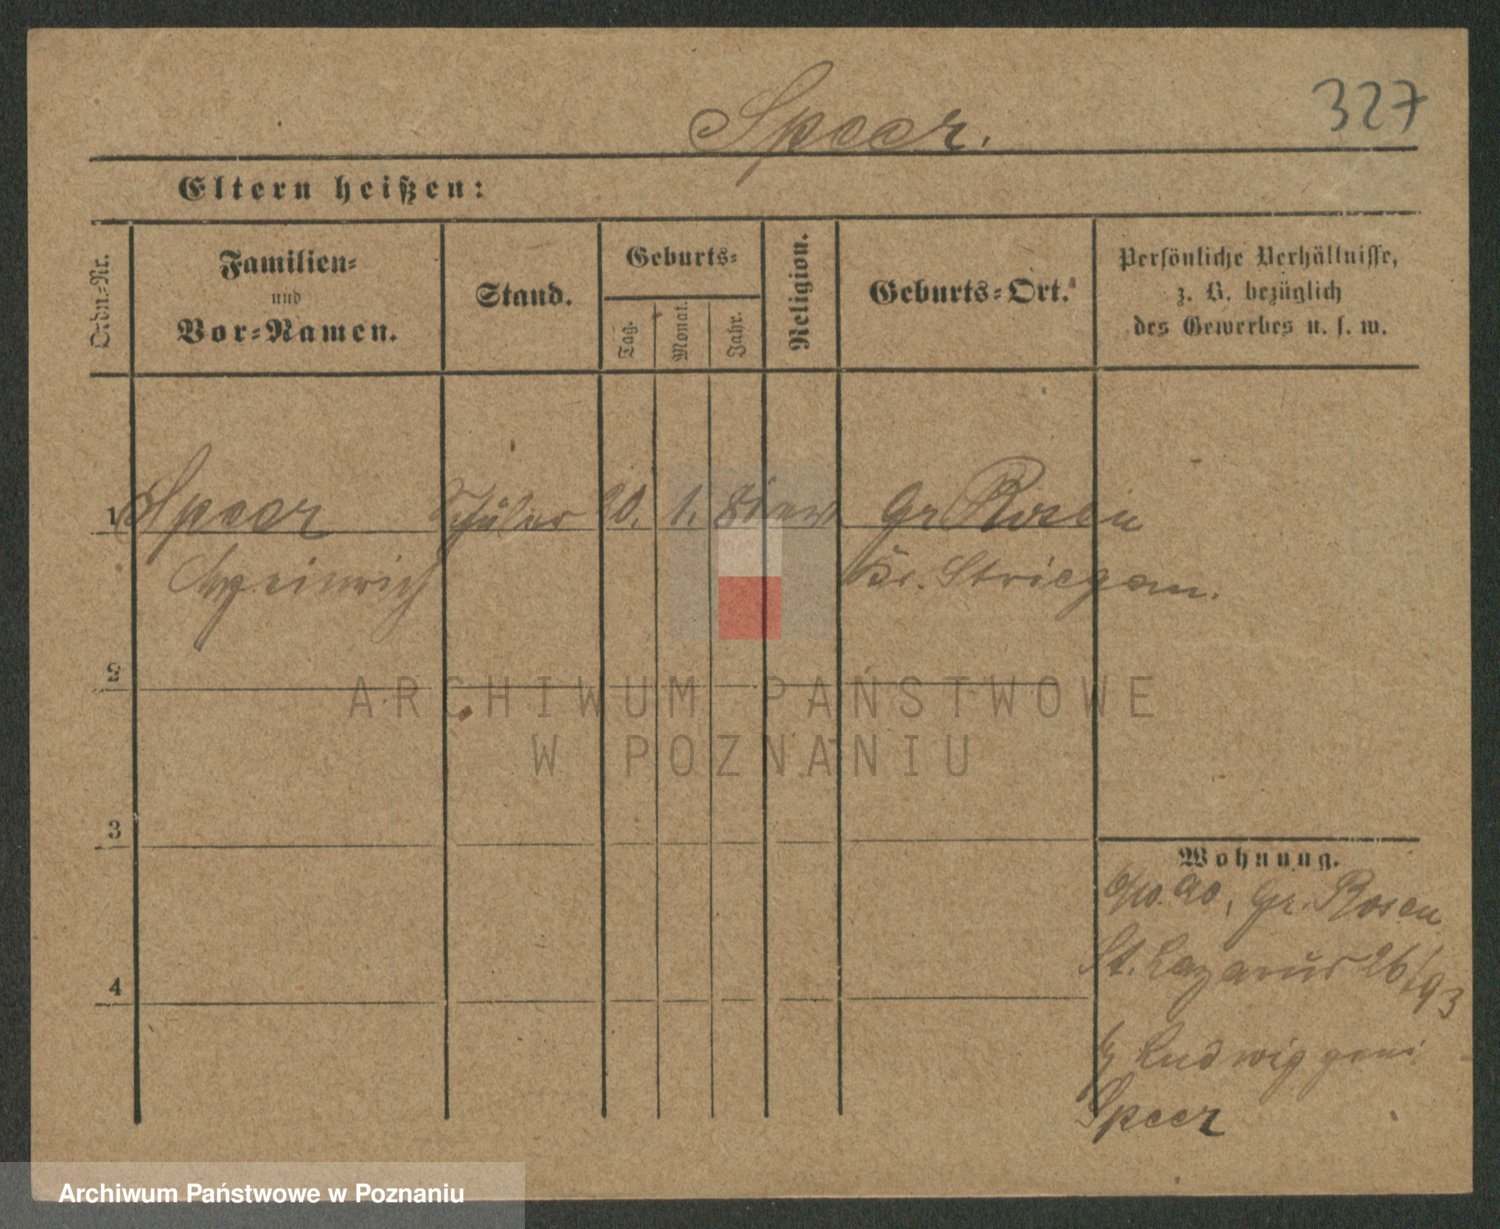 327
Speer.
Eltern heißen:
Ordn.-Nr.
Familien-
und
Vor-Namen.
Stand.
Geburts-
Tag.
Monat.
Jahr.
Religion.
Geburts-Ort.
Persönliche Verhältnisse,
z. B. bezüglich
des Gewerbes u. s. w.
1 Speer Schüler 20. 1. 81 ev. Gr Rosen
Heinrich Kr. Striegau.
2
3
4
Wohnung.
Gr. Rosen
St. Lazarus 26/ 93
Ludwig
Speer
ARCHIWUM PAŃSTWOWE
W POZNANIU
Archiwum Państwowe w Poznaniu